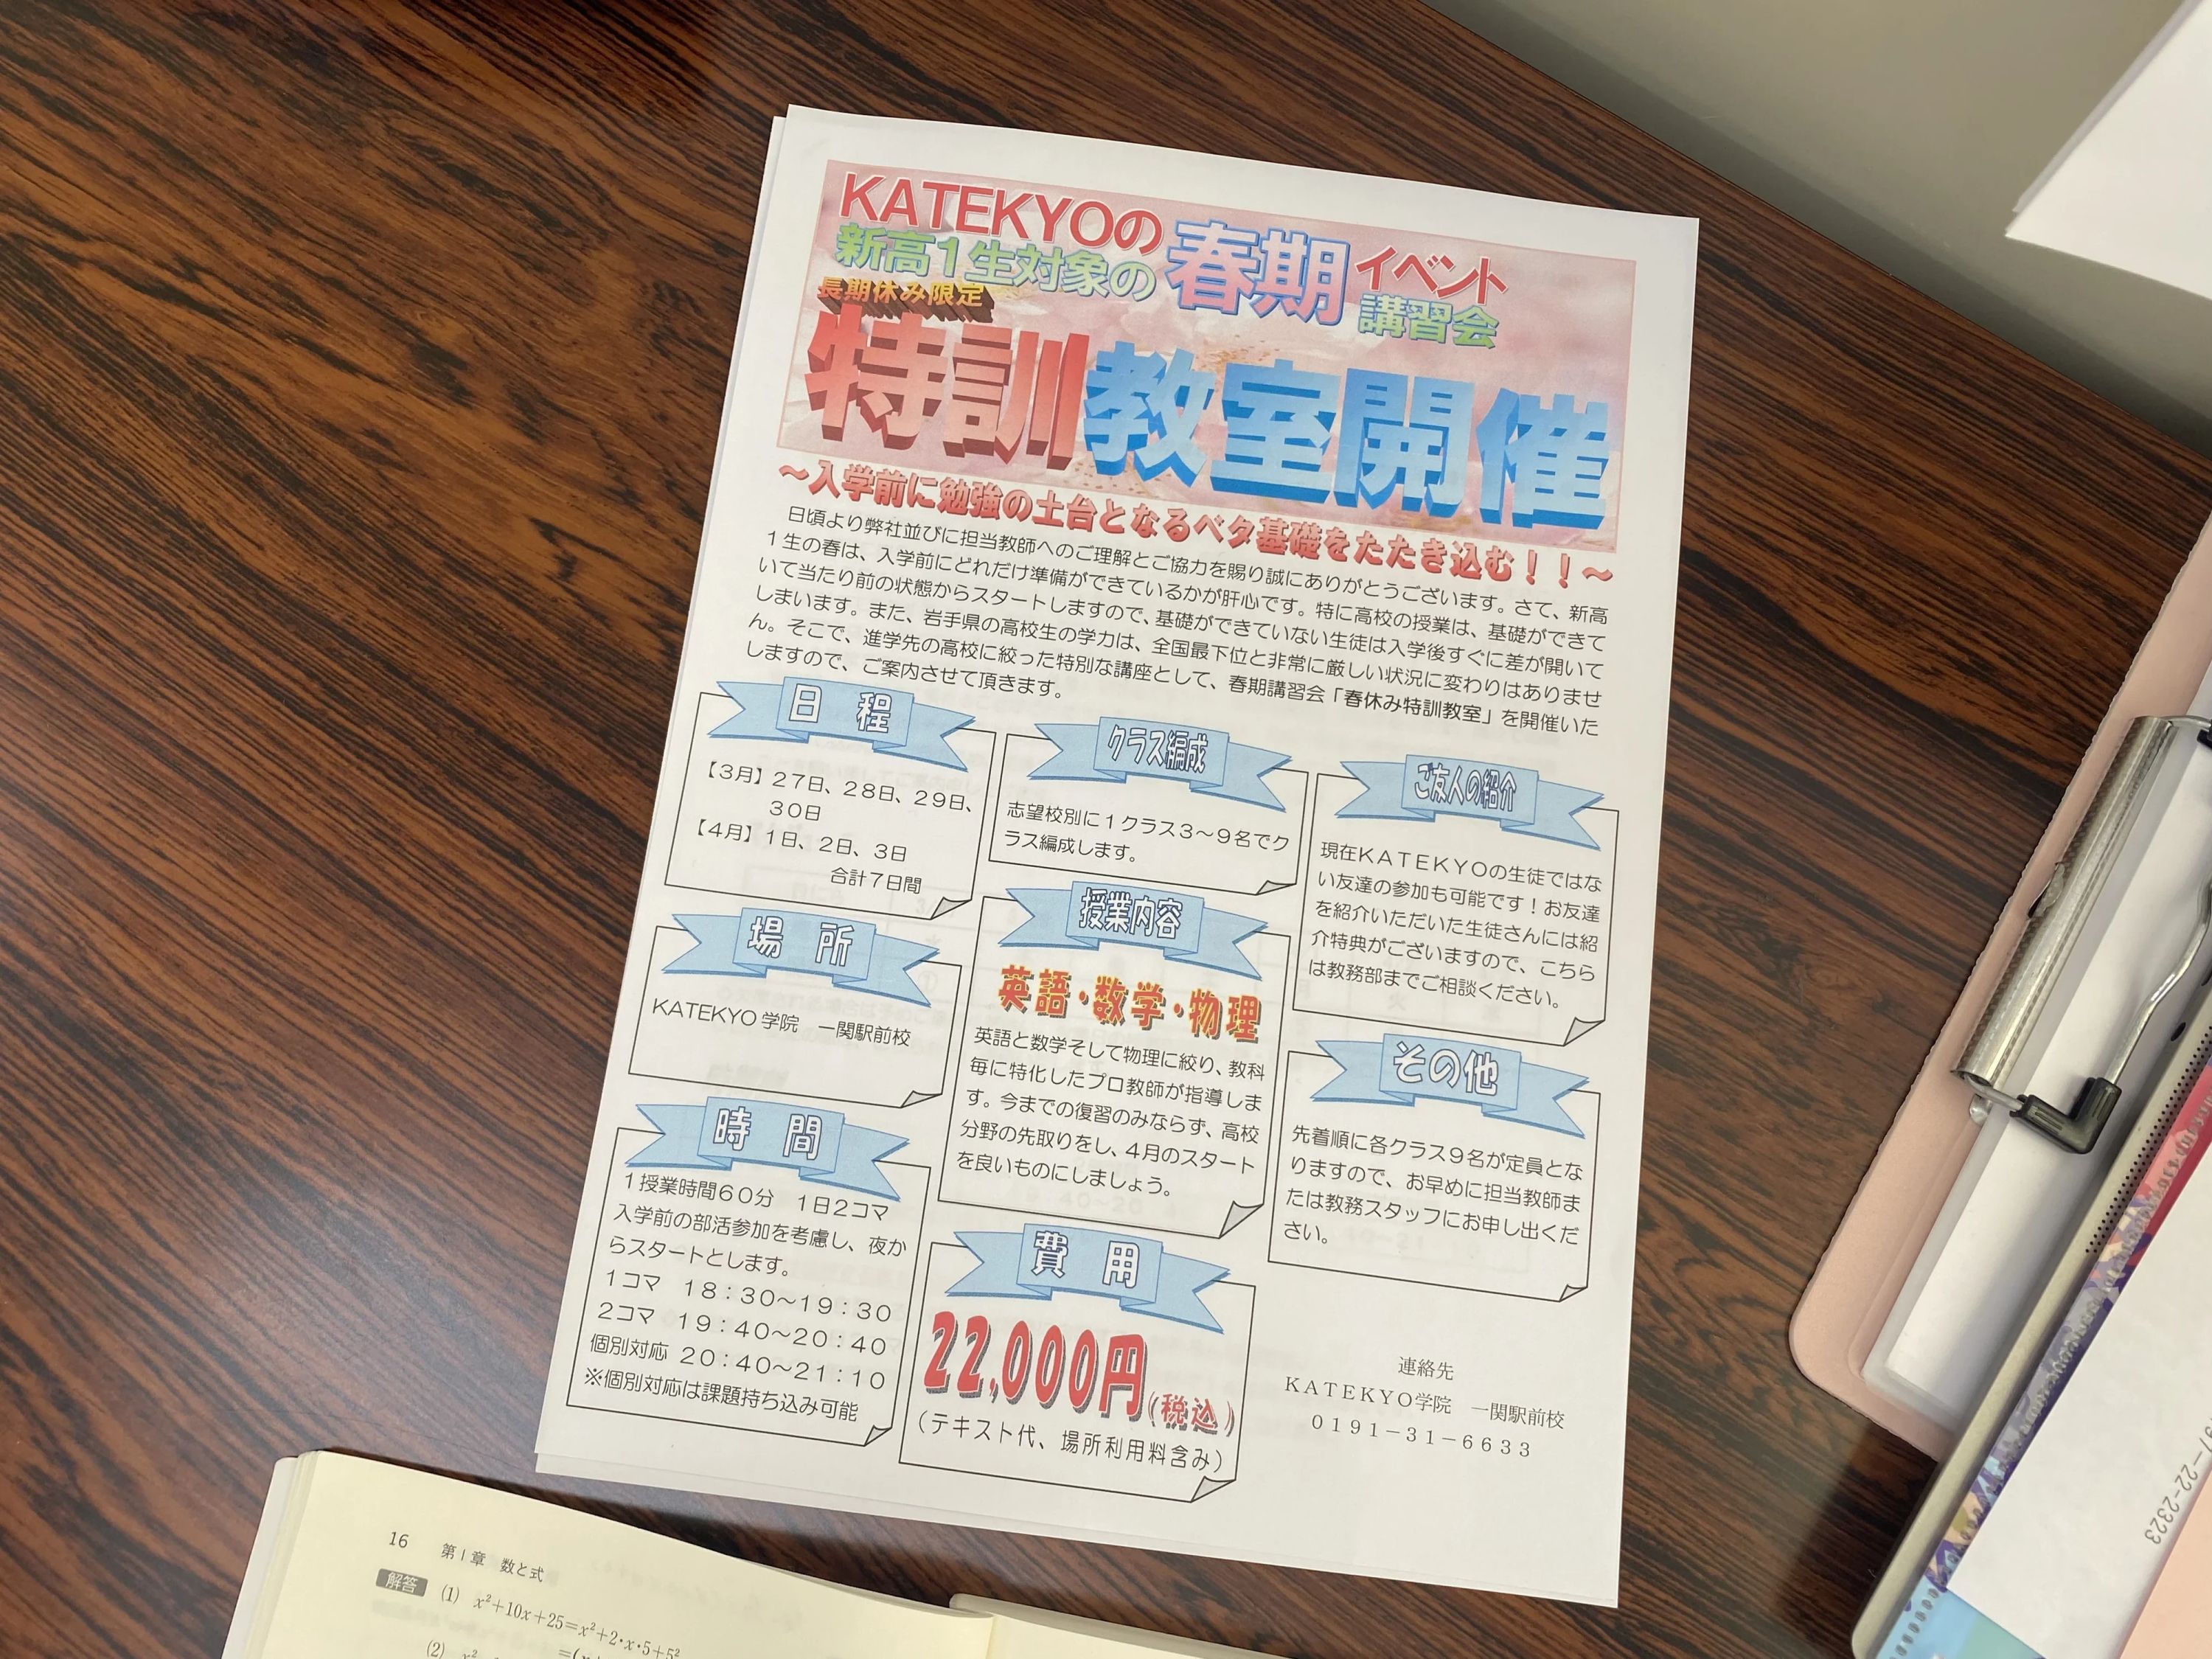 KATEKYOの
新高1生対象の
春期
イベント
講習会
長期休み限定
特訓教室開催
～入学前に勉強の土台となるベタ基礎をたたき込む！！～
日頃より弊社並びに担当教師へのご理解とご協力を賜り誠にありがとうございます。さて、新高
1生の春は、入学前にどれだけ準備ができているかが肝心です。特に高校の授業は、基礎ができて
いて当たり前の状態からスタートしますので、基礎ができていない生徒は入学後すぐに差が開いて
しまいます。また、岩手県の高校生の学力は、全国最下位と非常に厳しい状況に変わりはありませ
ん。そこで、進学先の高校に絞った特別な講座として、春期講習会「春休み特訓教室」を開催いた
しますので、ご案内させて頂きます。
日　程
【3月】27日、28日、29日、
30日
【4月】1日、2日、3日
合計7日間
場　所
KATEKYO学院　一関駅前校
時　間
1授業時間60分　1日2コマ
入学前の部活参加を考慮し、夜か
らスタートとします。
1コマ　18：30～19：30
2コマ　19：40～20：40
個別対応 20：40～21：10
※個別対応は課題持ち込み可能
クラス編成
志望校別に1クラス3～9名でク
ラス編成します。
授業内容
英語・数学・物理
英語と数学そして物理に絞り、教科
毎に特化したプロ教師が指導しま
す。今までの復習のみならず、高校
分野の先取りをし、4月のスタート
を良いものにしましょう。
費　用
22,000円(税込)
（テキスト代、場所利用料含み）
ご友人の紹介
現在KATEKYOの生徒ではな
い友達の参加も可能です！お友達
を紹介いただいた生徒さんには紹
介特典がございますので、こちら
は教務部までご相談ください。
その他
先着順に各クラス9名が定員とな
りますので、お早めに担当教師ま
たは教務スタッフにお申し出くだ
さい。
連絡先
KATEKYO学院　一関駅前校
0191－31－6633
16　第1章　数と式
解答　(1)　x²+10x+25=x²+2・x・5+5²
(2)
7-22-2323